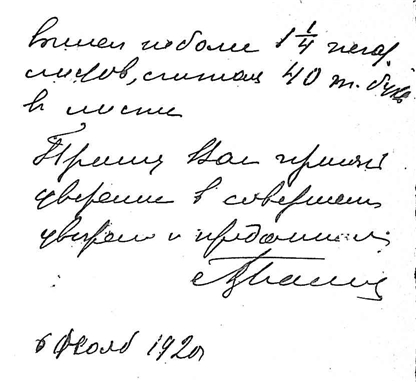 вышел не более 1 1/4 печат.
листов, считая 40 т. букв
в листе
Прошу Вас принять
уверение в совершен
уважен и преданности
6 1920